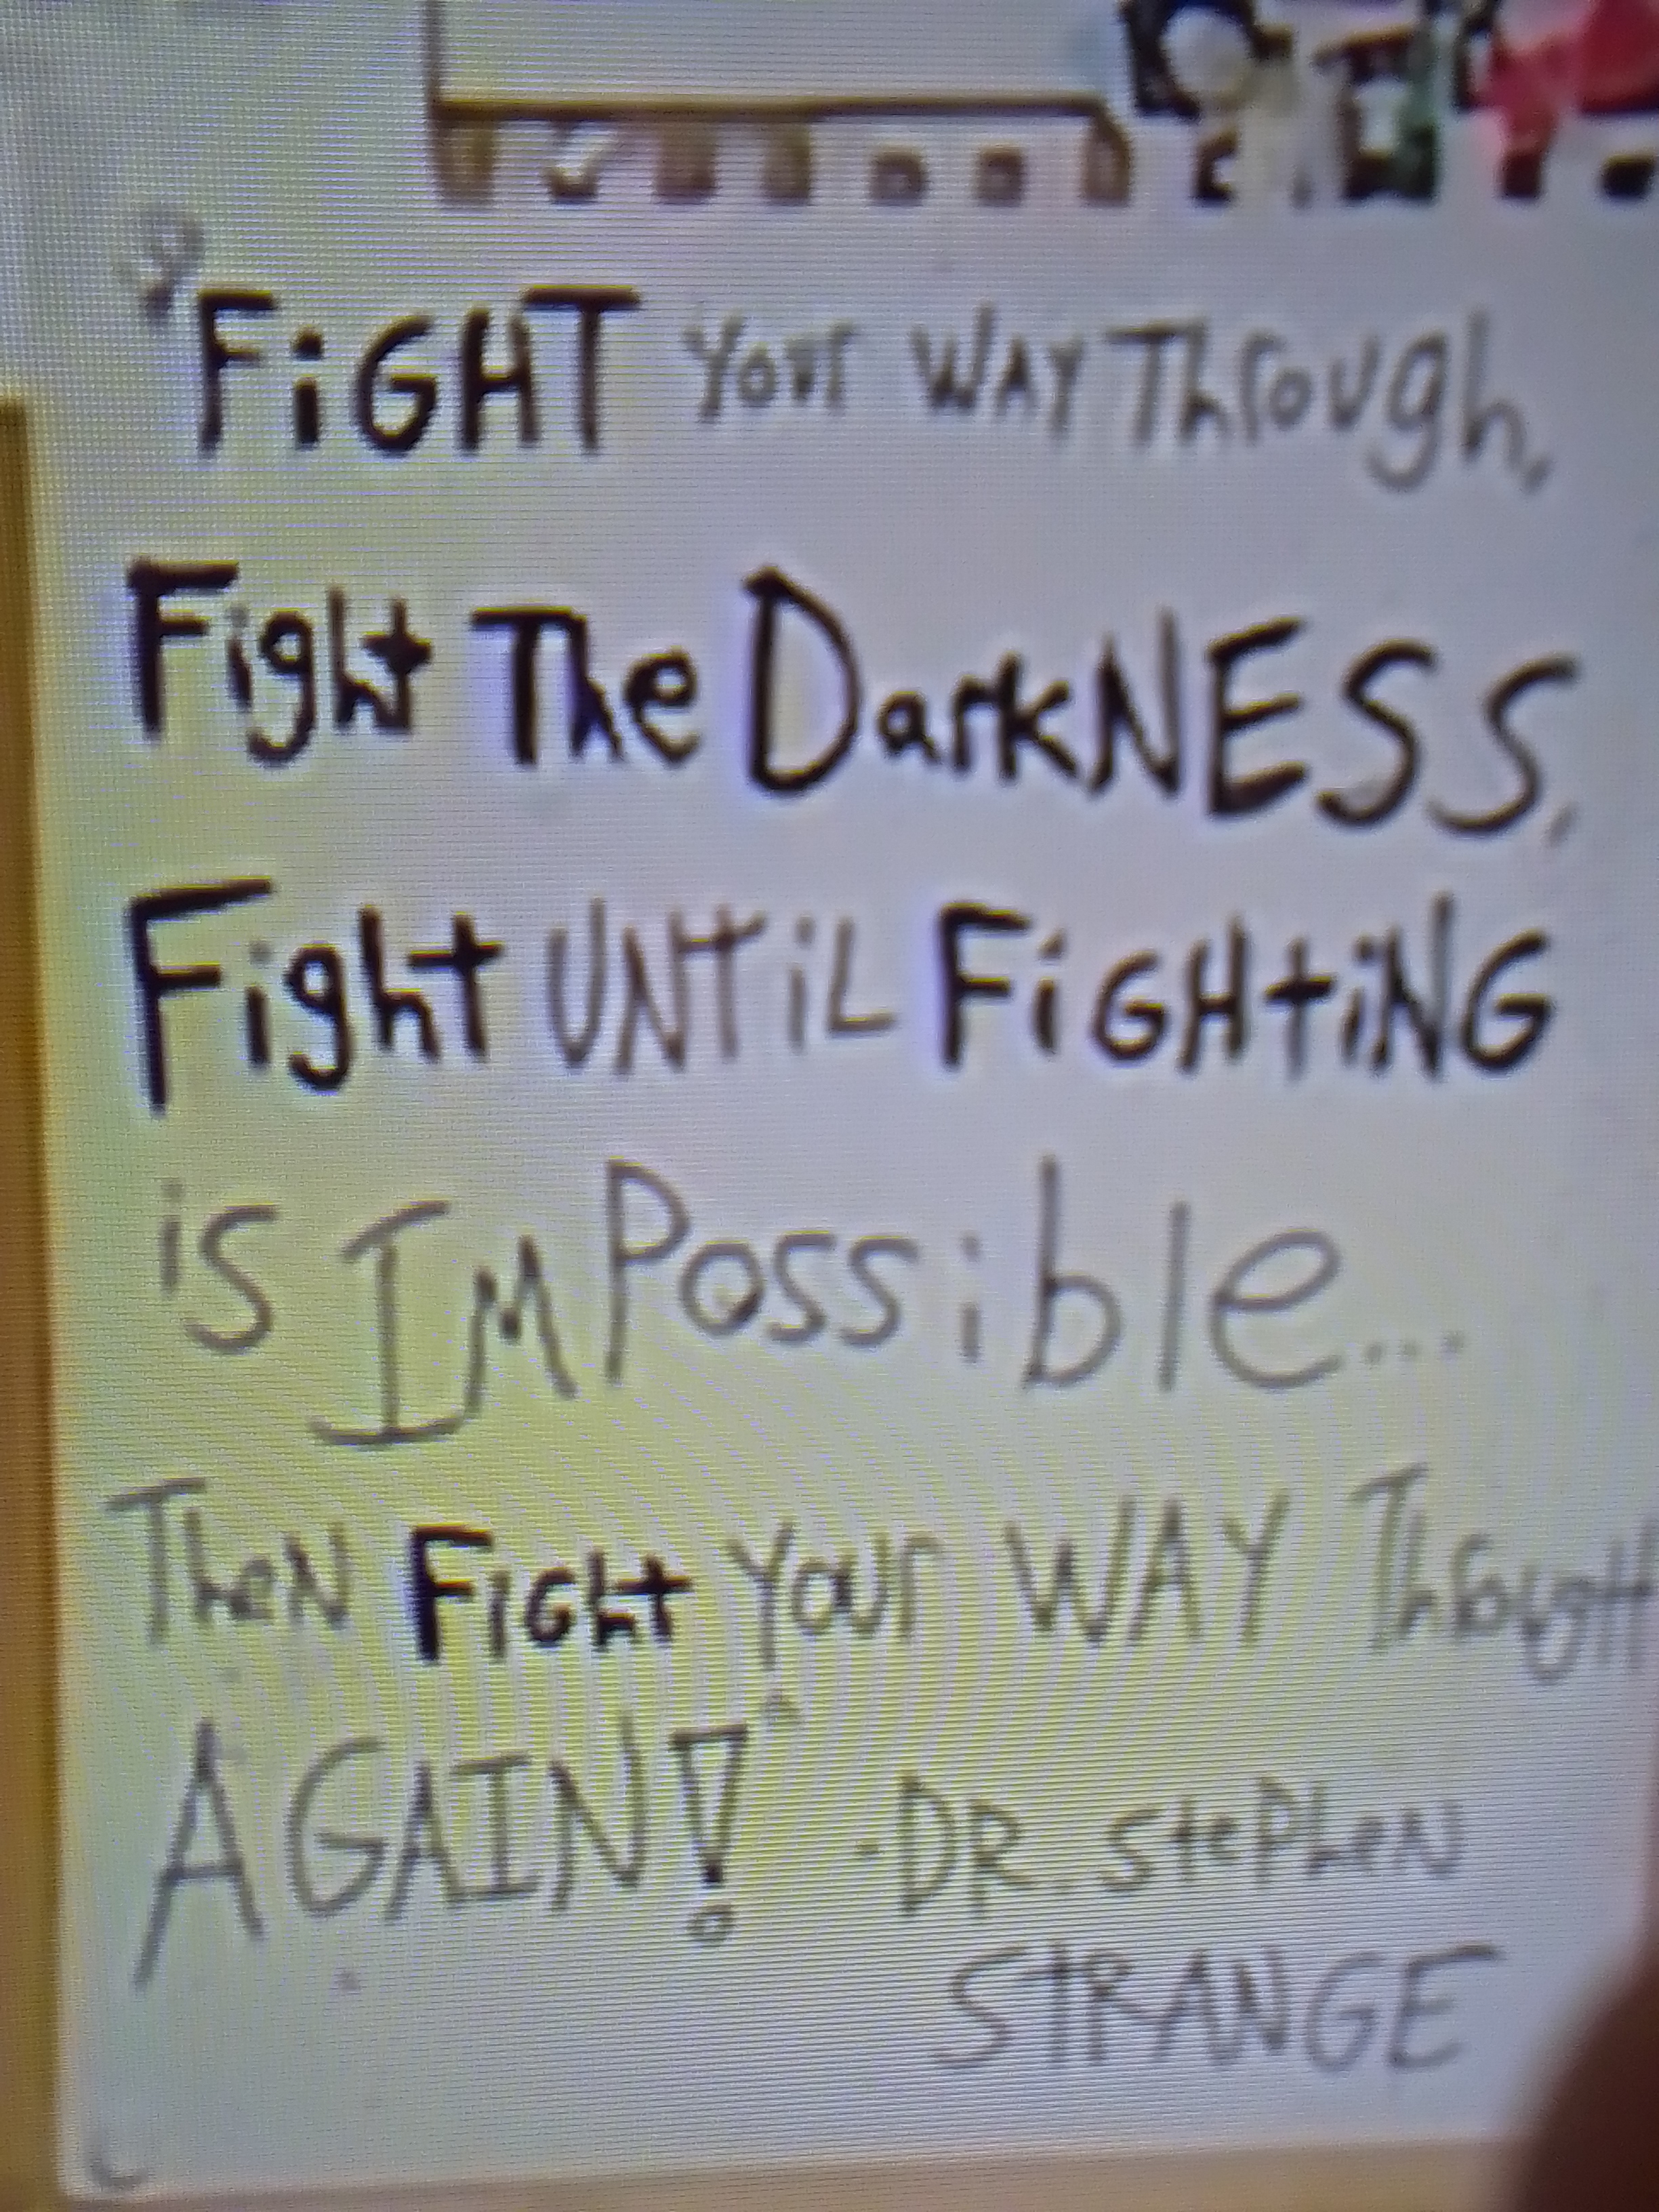 "FiGHT Your WAY Through,
Fight The DarkNESS,
Fight UNTiL FiGHtiNG
is IMPossible...
TheN Fight Your WAY ThrougH
AGAIN!" -DR. StePheN
STRANGE